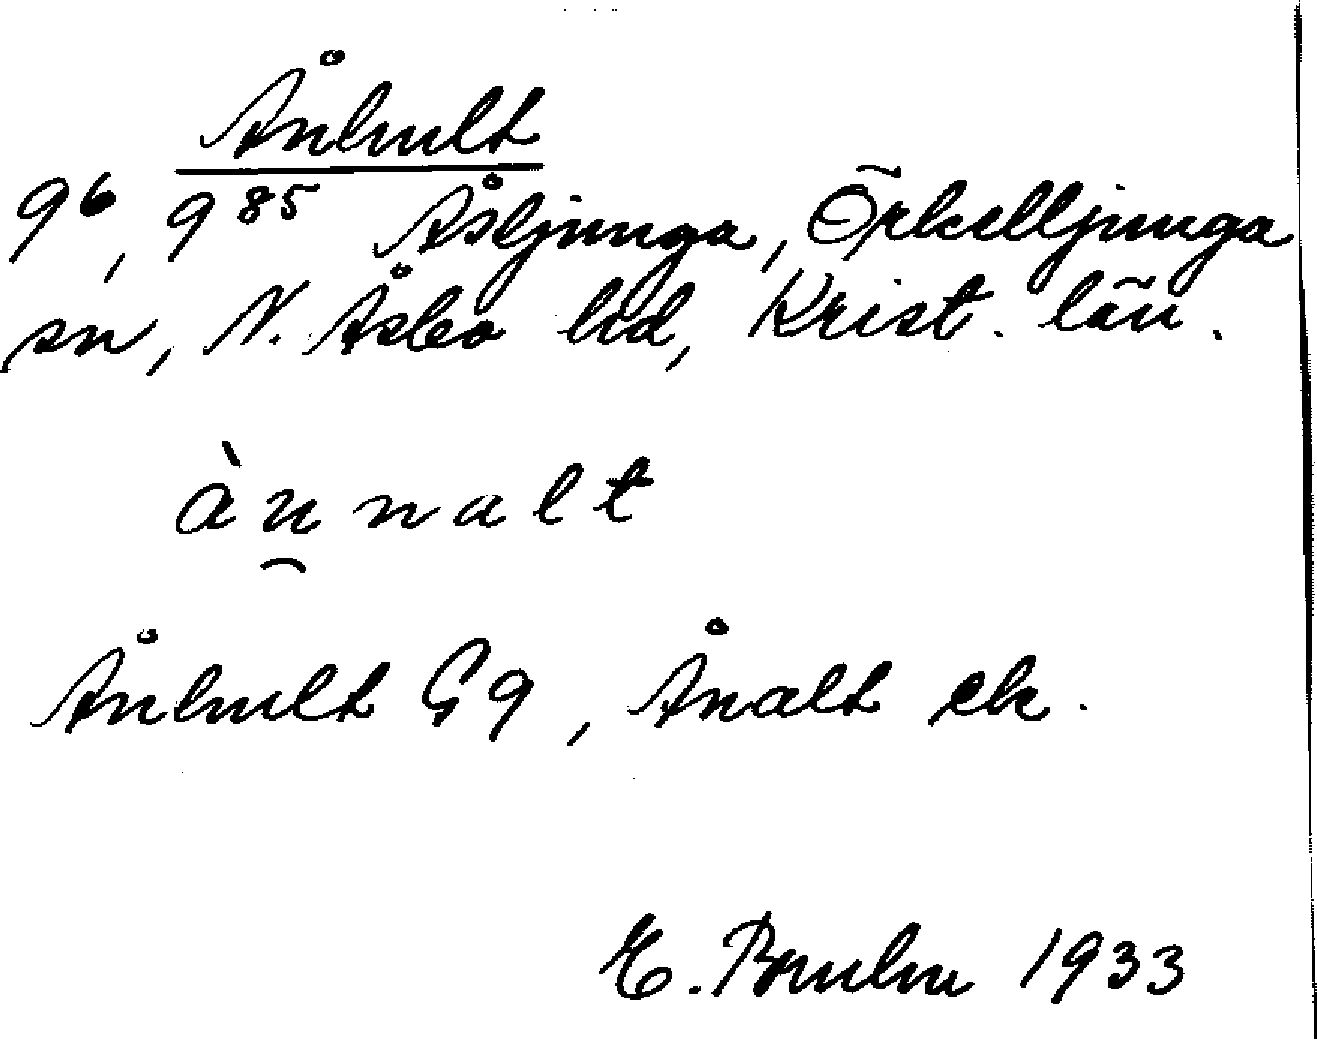 Ånhult
9⁶, 9⁸⁵ Åsljunga, Örkelljunga
sn, N. Åsbo hd, Krist. län.
àu̯nalt
Ånhult G9, Ånalt ek.
E. Bruhn 1933